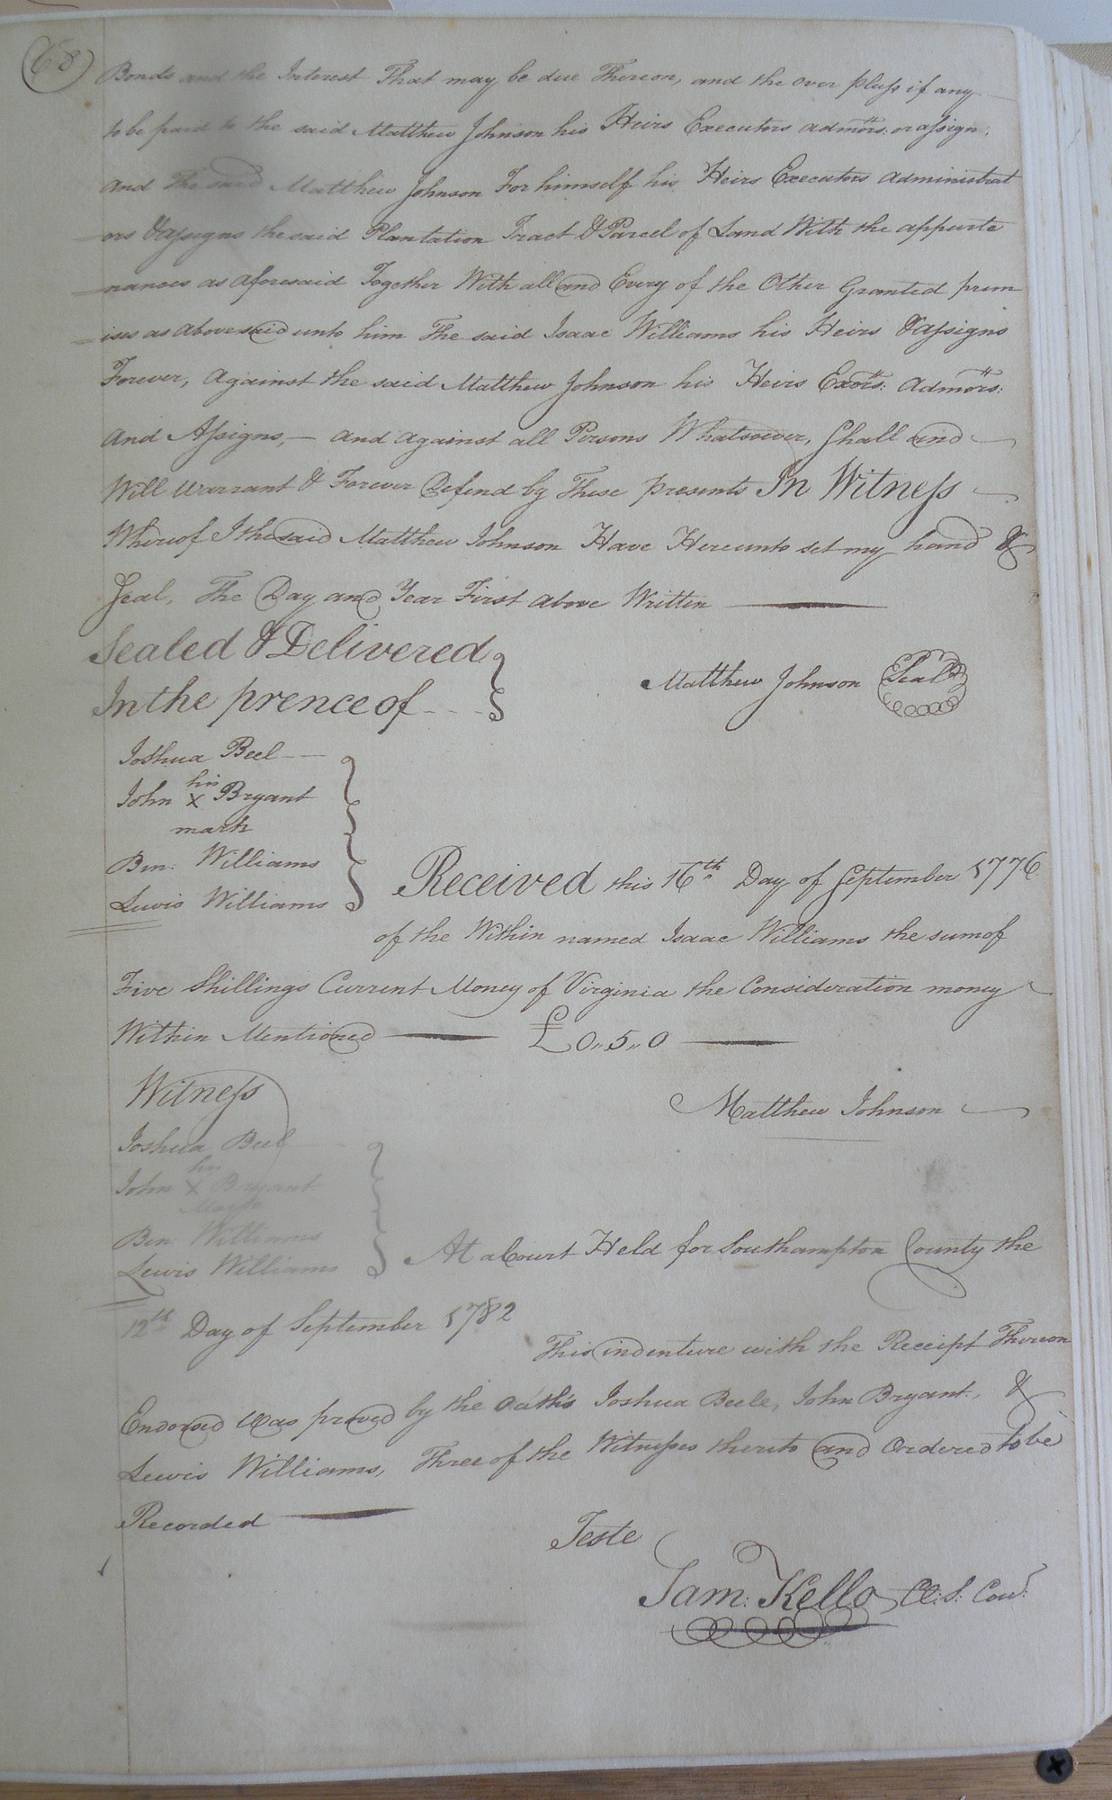 68
Bonds and the Interest That may be due Thereon, and the over pluss if any
to be paid to the said Matthew Johnson his Heirs Executors admors. or assign.
and The said Matthew Johnson For himself his Heirs Executors administrat
ors & assigns the said Plantation Tract & Parcel of Land With the appurte
nances as aforesaid Together With all and Every of the Other Granted prem
ises as abovesaid unto him The said Isaac Williams his Heirs & assigns
Forever, against the said Matthew Johnson his Heirs Exors. admors.
and Assigns, — and against all Persons Whatsoever, Shall and
Will warrant & Forever Defend by These presents In Witness
Whereof I the said Matthew Johnson Have Hereunto set my hand &
Seal, The Day and Year First above Written
Sealed & Delivered
In the prence of
Matthew Johnson Seal
Joshua Beel
his
John X Bryant
mark
Ben. Williams
Lewis Williams
Received this 16th Day of September 1776
of the Within named Isaac Williams the sum of
Five Shillings Current Money of Virginia the Consideration money
Within Mentioned — £ 0..5..0
Witness
Matthew Johnson
Joshua Beel
his
John X Bryant
Mark
Ben Williams
Lewis Williams
At a Court Held for Southampton County the
12th Day of September 1782
This indenture with the Receipt Thereon
Endorsed was proved by the oaths Joshua Beele, John Bryant, &
Lewis Williams, Three of the Witnesses thereto and Ordered to be
Recorded
Teste
Sam: Kello Cl: S: Cou: